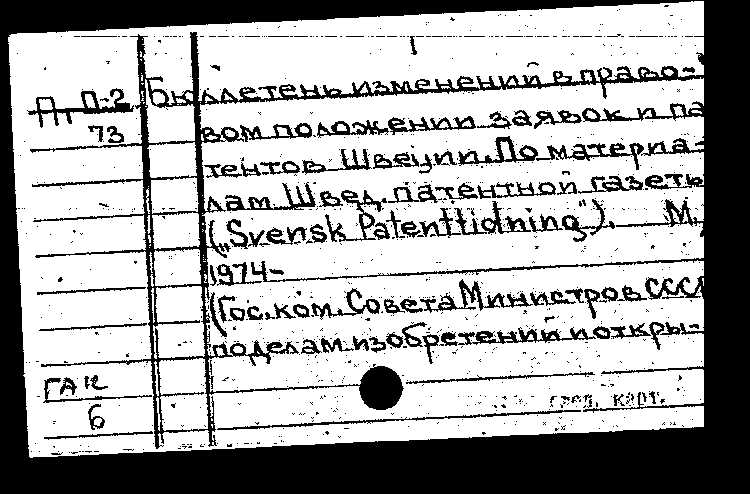 1
П-2 Бюллетень изменений в право-
73 вом положении заявок и па
тентов Швеции. По материа-
лам Швед. патентной газеты
(„Svensk Patenttidning"). М.,
1974-
(Гос. ком. Совета Министров СССР
по делам изобретений и откры-
ГАК
6
след. карт.